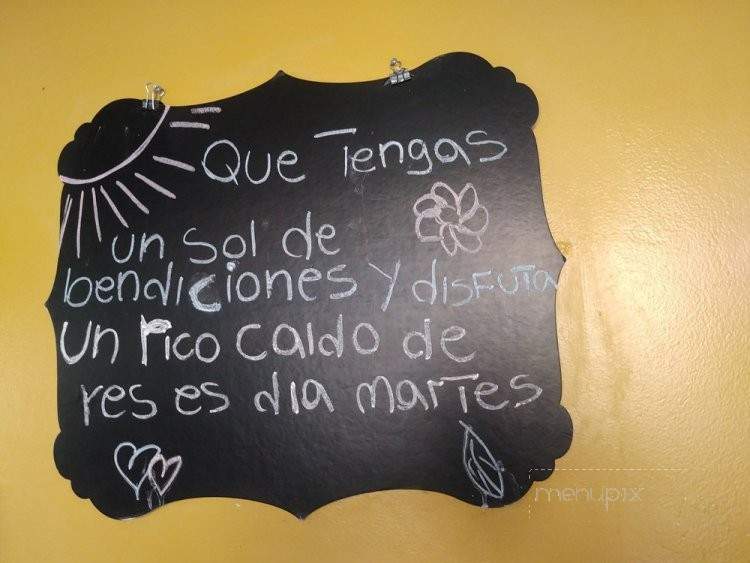 Que Tengas
un sol de
bendiciones y disfuta
un rico caldo de
res es dia martes
menupix